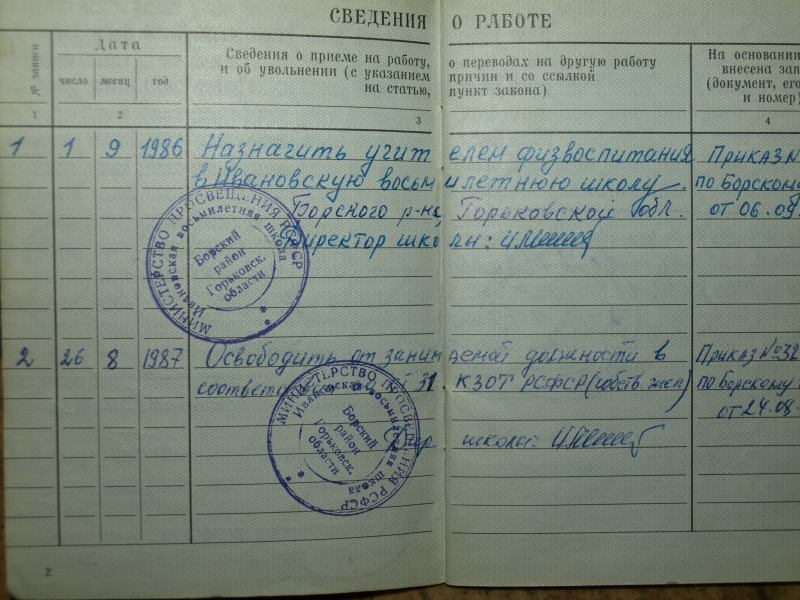 СВЕДЕНИЯ О РАБОТЕ
№ записи
Дата
число месяц год
Сведения о приеме на работу, о переводах на другую работу
и об увольнении (с указанием причин и со ссылкой
на статью, пункт закона)
На основании
внесена зап
(документ, его
и номер)
1 2 3 4
1 1 9 1986 Назначить учителем физвоспитания Приказ №
в Ивановскую восьмилетнюю школу. по Борскому
Борского р-на, Горьковской обл. от 06.09.
Директор школы:
МИНИСТЕРСТВО ПРОСВЕЩЕНИЯ РСФСР
Ивановская восьмилетняя школа
Борский
район
Горьковск.
области
2 26 8 1987 Освободить от занимаемой должности в Приказ № 32
31 КЗОТ РСФСР (собств. жел) по Борскому
от 24.08.
школы:
МИНИСТЕРСТВО ПРОСВЕЩЕНИЯ РСФСР
Ивановская восьмилетняя школа
Борский
район
Горьковск.
области
2